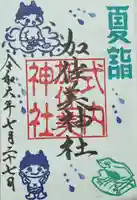 夏詣
加佐美神社
式内
神社
令和六年七月二十七日